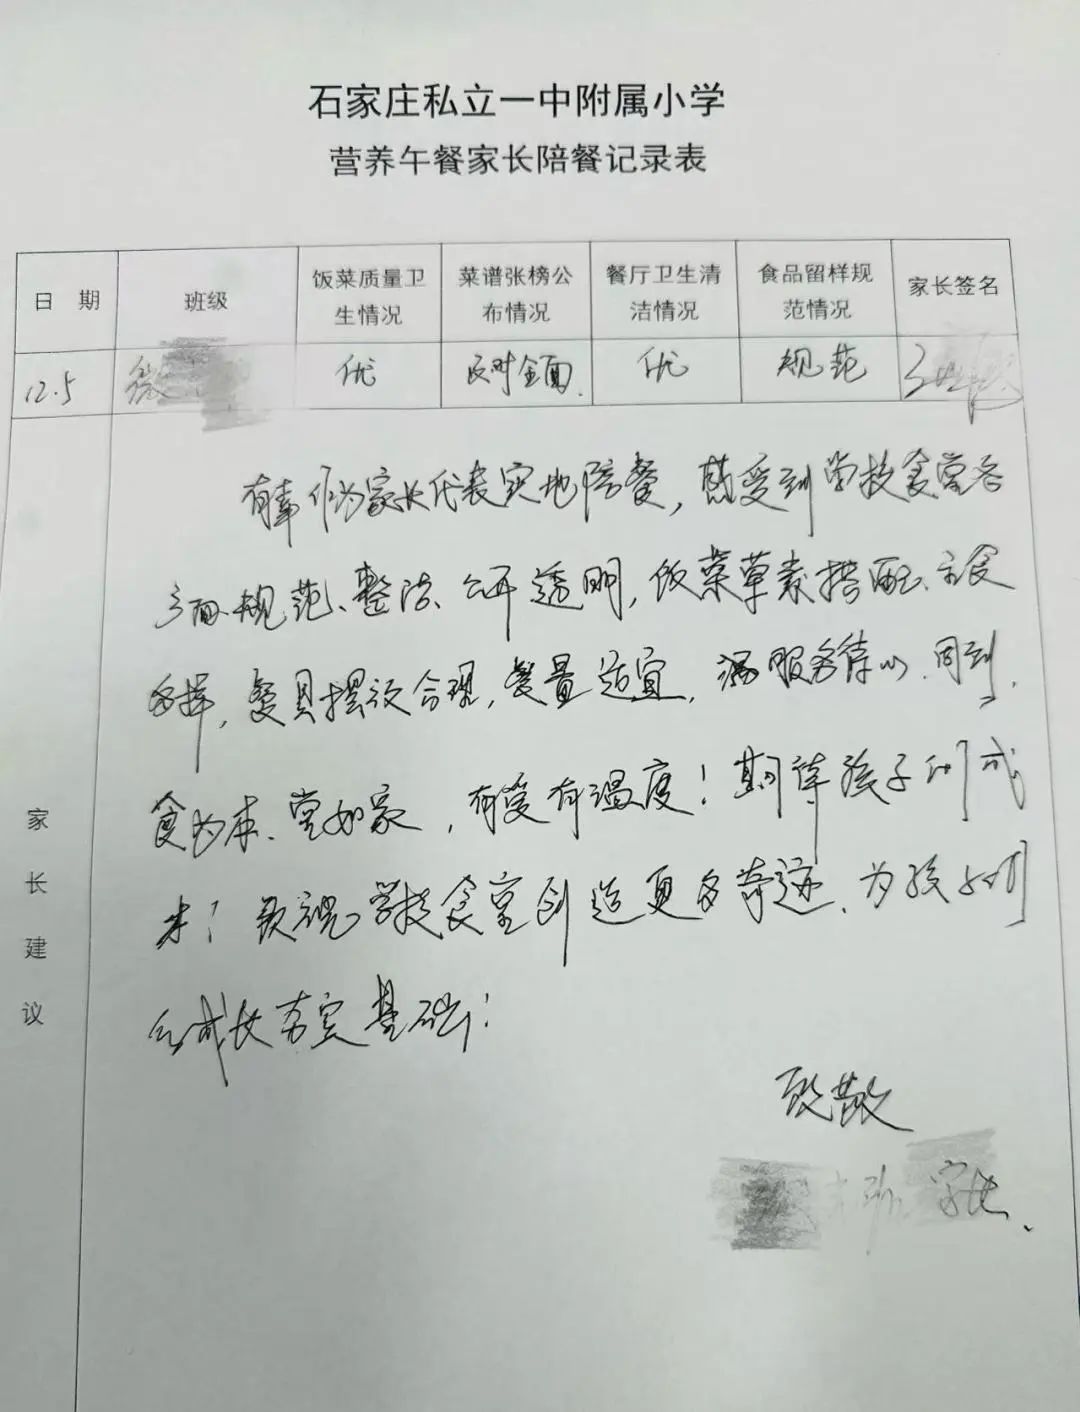 石家庄私立一中附属小学
营养午餐家长陪餐记录表
日 期 班级 饭菜质量卫生情况 菜谱张榜公布情况 餐厅卫生清洁情况 食品留样规范情况 家长签名
12.5 优 及时全面. 优 规范
家长建议
有幸作为家长代表实地陪餐，感受到学校食堂各
方面规范、整洁、公开透明，饭菜荤素搭配、主食
多样，餐具摆放合理，餐量适宜，服务周到.
食为本、堂如家，有爱有温度！期待孩子们成
才！预祝学校食堂创造更多奇迹、为孩子们
成长夯实基础！
致敬
家长.